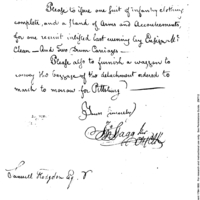 Please to issue one suit of infantry clothing
complete, and a stand of Arms and Accoutrements,
for one recruit inlisted last evening by
Clean — And Two Drum Carriages —
Please also to furnish a waggon to
convey the baggage of the detachment ordered to
march to morrow for Pittsburg
Yours sincerely
Samuel Hodgdon Esq.